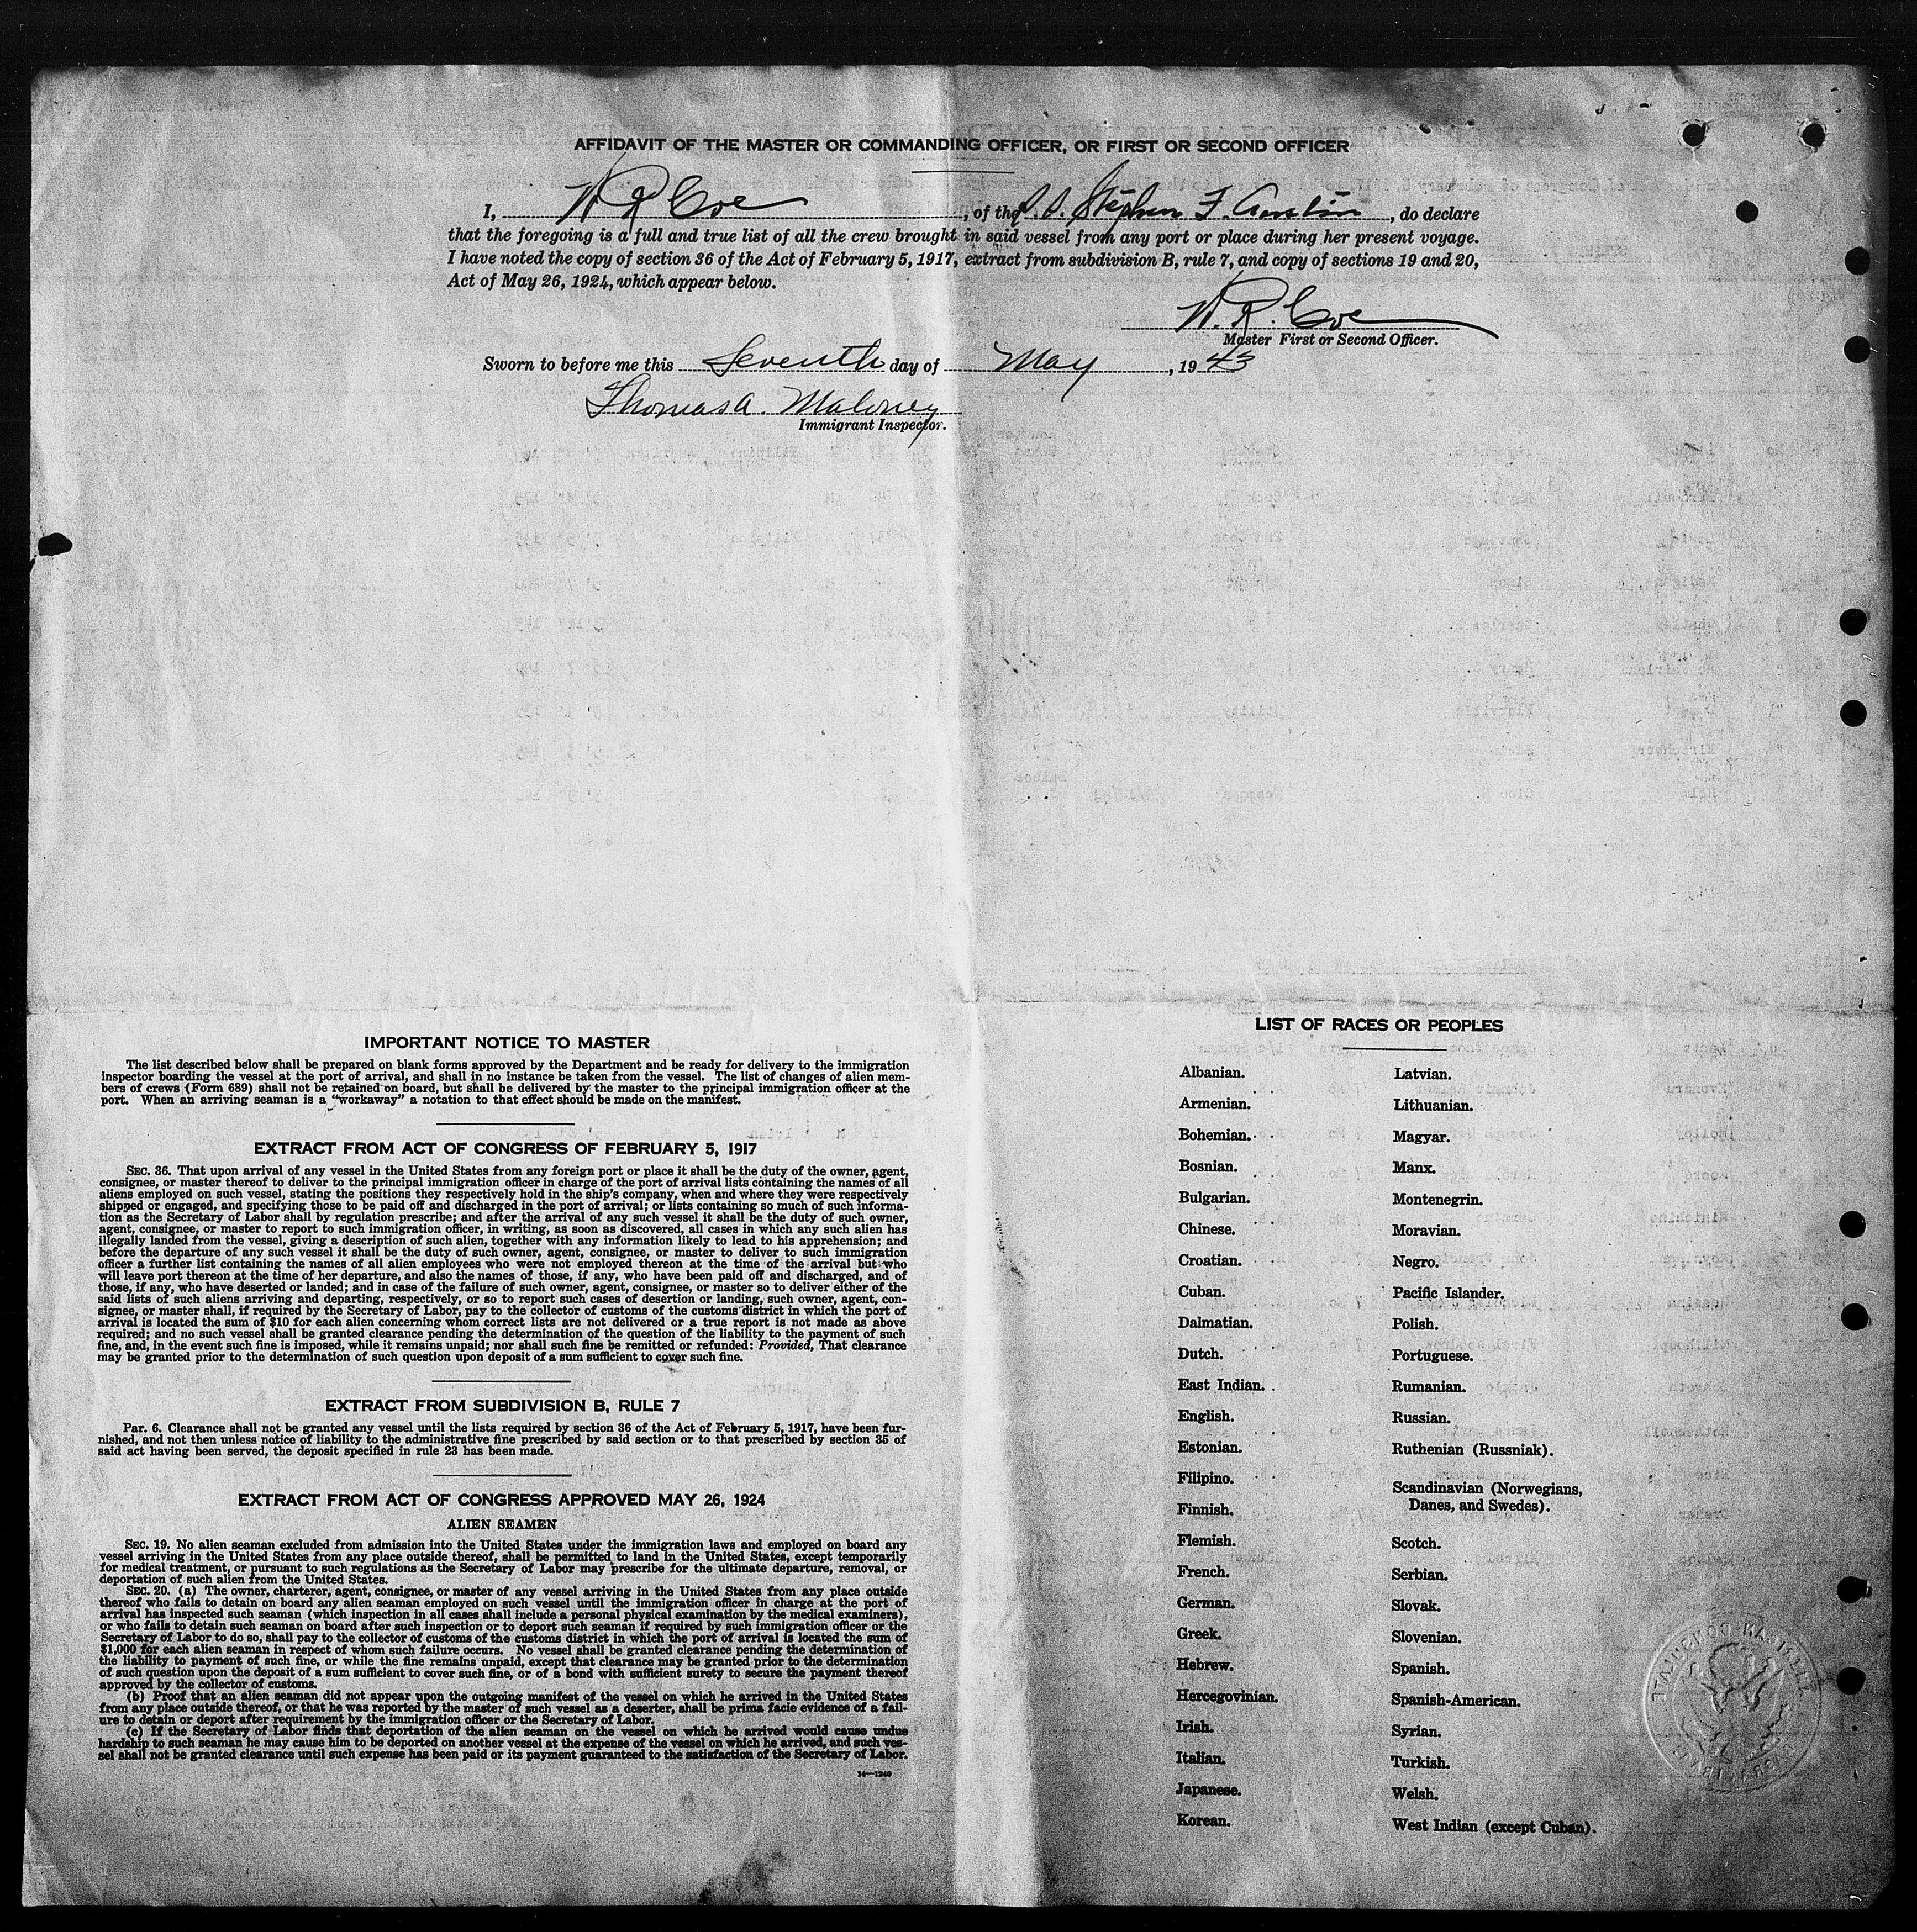 AFFIDAVIT OF THE MASTER OR COMMANDING OFFICER, OR FIRST OR SECOND OFFICER
I, W R Coe, of the S. S. Stephen F. Austin, do declare
that the foregoing is a full and true list of all the crew brought in said vessel from any port or place during her present voyage.
I have noted the copy of section 36 of the Act of February 5, 1917, extract from subdivision B, rule 7, and copy of sections 19 and 20,
Act of May 26, 1924, which appear below.
W. R. Coe
Master First or Second Officer.
Sworn to before me this Seventh day of May, 1943
Thomas A. Maloney
Immigrant Inspector.
IMPORTANT NOTICE TO MASTER
The list described below shall be prepared on blank forms approved by the Department and be ready for delivery to the immigration
inspector boarding the vessel at the port of arrival, and shall in no instance be taken from the vessel. The list of changes of alien mem-
bers of crews (Form 689) shall not be retained on board, but shall be delivered by the master to the principal immigration officer at the
port. When an arriving seaman is a "workaway" a notation to that effect should be made on the manifest.
EXTRACT FROM ACT OF CONGRESS OF FEBRUARY 5, 1917
SEC. 36. That upon arrival of any vessel in the United States from any foreign port or place it shall be the duty of the owner, agent,
consignee, or master thereof to deliver to the principal immigration officer in charge of the port of arrival lists containing the names of all
aliens employed on such vessel, stating the positions they respectively hold in the ship's company, when and where they were respectively
shipped or engaged, and specifying those to be paid off and discharged in the port of arrival; or lists containing so much of such informa-
tion as the Secretary of Labor shall by regulation prescribe; and after the arrival of any such vessel it shall be the duty of such owner,
agent, consignee, or master to report to such immigration officer, in writing, as soon as discovered, all cases in which any such alien has
illegally landed from the vessel, giving a description of such alien, together with any information likely to lead to his apprehension; and
before the departure of any such vessel it shall be the duty of such owner, agent, consignee, or master to deliver to such immigration
officer a further list containing the names of all alien employees who were not employed thereon at the time of the arrival but who
will leave port thereon at the time of her departure, and also the names of those, if any, who have been paid off and discharged, and of
those, if any, who have deserted or landed; and in case of the failure of such owner, agent, consignee, or master so to deliver either of the
said lists of such aliens arriving and departing, respectively, or so to report such cases of desertion or landing, such owner, agent, con-
signee, or master shall, if required by the Secretary of Labor, pay to the collector of customs of the customs district in which the port of
arrival is located the sum of $10 for each alien concerning whom correct lists are not delivered or a true report is not made as above
required; and no such vessel shall be granted clearance pending the determination of the question of the liability to the payment of such
fine, and, in the event such fine is imposed, while it remains unpaid; nor shall such fine be remitted or refunded: Provided, That clearance
may be granted prior to the determination of such question upon deposit of a sum sufficient to cover such fine.
EXTRACT FROM SUBDIVISION B, RULE 7
Par. 6. Clearance shall not be granted any vessel until the lists required by section 36 of the Act of February 5, 1917, have been fur-
nished, and not then unless notice of liability to the administrative fine prescribed by said section or to that prescribed by section 35 of
said act having been served, the deposit specified in rule 23 has been made.
EXTRACT FROM ACT OF CONGRESS APPROVED MAY 26, 1924
ALIEN SEAMEN
SEC. 19. No alien seaman excluded from admission into the United States under the immigration laws and employed on board any
vessel arriving in the United States from any place outside thereof, shall be permitted to land in the United States, except temporarily
for medical treatment, or pursuant to such regulations as the Secretary of Labor may prescribe for the ultimate departure, removal, or
deportation of such alien from the United States.
SEC. 20. (a) The owner, charterer, agent, consignee, or master of any vessel arriving in the United States from any place outside
thereof who fails to detain on board any alien seaman employed on such vessel until the immigration officer in charge at the port of
arrival has inspected such seaman (which inspection in all cases shall include a personal physical examination by the medical examiners),
or who fails to detain such seaman on board after such inspection or to deport such seaman if required by such immigration officer or the
Secretary of Labor to do so, shall pay to the collector of customs of the customs district in which the port of arrival is located the sum of
$1,000 for each alien seaman in respect of whom such failure occurs. No vessel shall be granted clearance pending the determination of
the liability to payment of such fine, or while the fine remains unpaid, except that clearance may be granted prior to the determination
of such question upon the deposit of a sum sufficient to cover such fine, or of a bond with sufficient surety to secure the payment thereof
approved by the collector of customs.
(b) Proof that an alien seaman did not appear upon the outgoing manifest of the vessel on which he arrived in the United States
from any place outside thereof, or that he was reported by the master of such vessel as a deserter, shall be prima facie evidence of a fail-
ure to detain or deport after requirement by the immigration officer or the Secretary of Labor.
(c) If the Secretary of Labor finds that deportation of the alien seaman on the vessel on which he arrived would cause undue
hardship to such seaman he may cause him to be deported on another vessel at the expense of the vessel on which he arrived, and such ves-
sel shall not be granted clearance until such expense has been paid or its payment guaranteed to the satisfaction of the Secretary of Labor.
14—1240
LIST OF RACES OR PEOPLES
Albanian.
Armenian.
Bohemian.
Bosnian.
Bulgarian.
Chinese.
Croatian.
Cuban.
Dalmatian.
Dutch.
East Indian.
English.
Estonian.
Filipino.
Finnish.
Flemish.
French.
German.
Greek.
Hebrew.
Hercegovinian.
Irish.
Italian.
Japanese.
Korean.
Latvian.
Lithuanian.
Magyar.
Manx.
Montenegrin.
Moravian.
Negro.
Pacific Islander.
Polish.
Portuguese.
Rumanian.
Russian.
Ruthenian (Russniak).
Scandinavian (Norwegians,
Danes, and Swedes).
Scotch.
Serbian.
Slovak.
Slovenian.
Spanish.
Spanish-American.
Syrian.
Turkish.
Welsh.
West Indian (except Cuban).